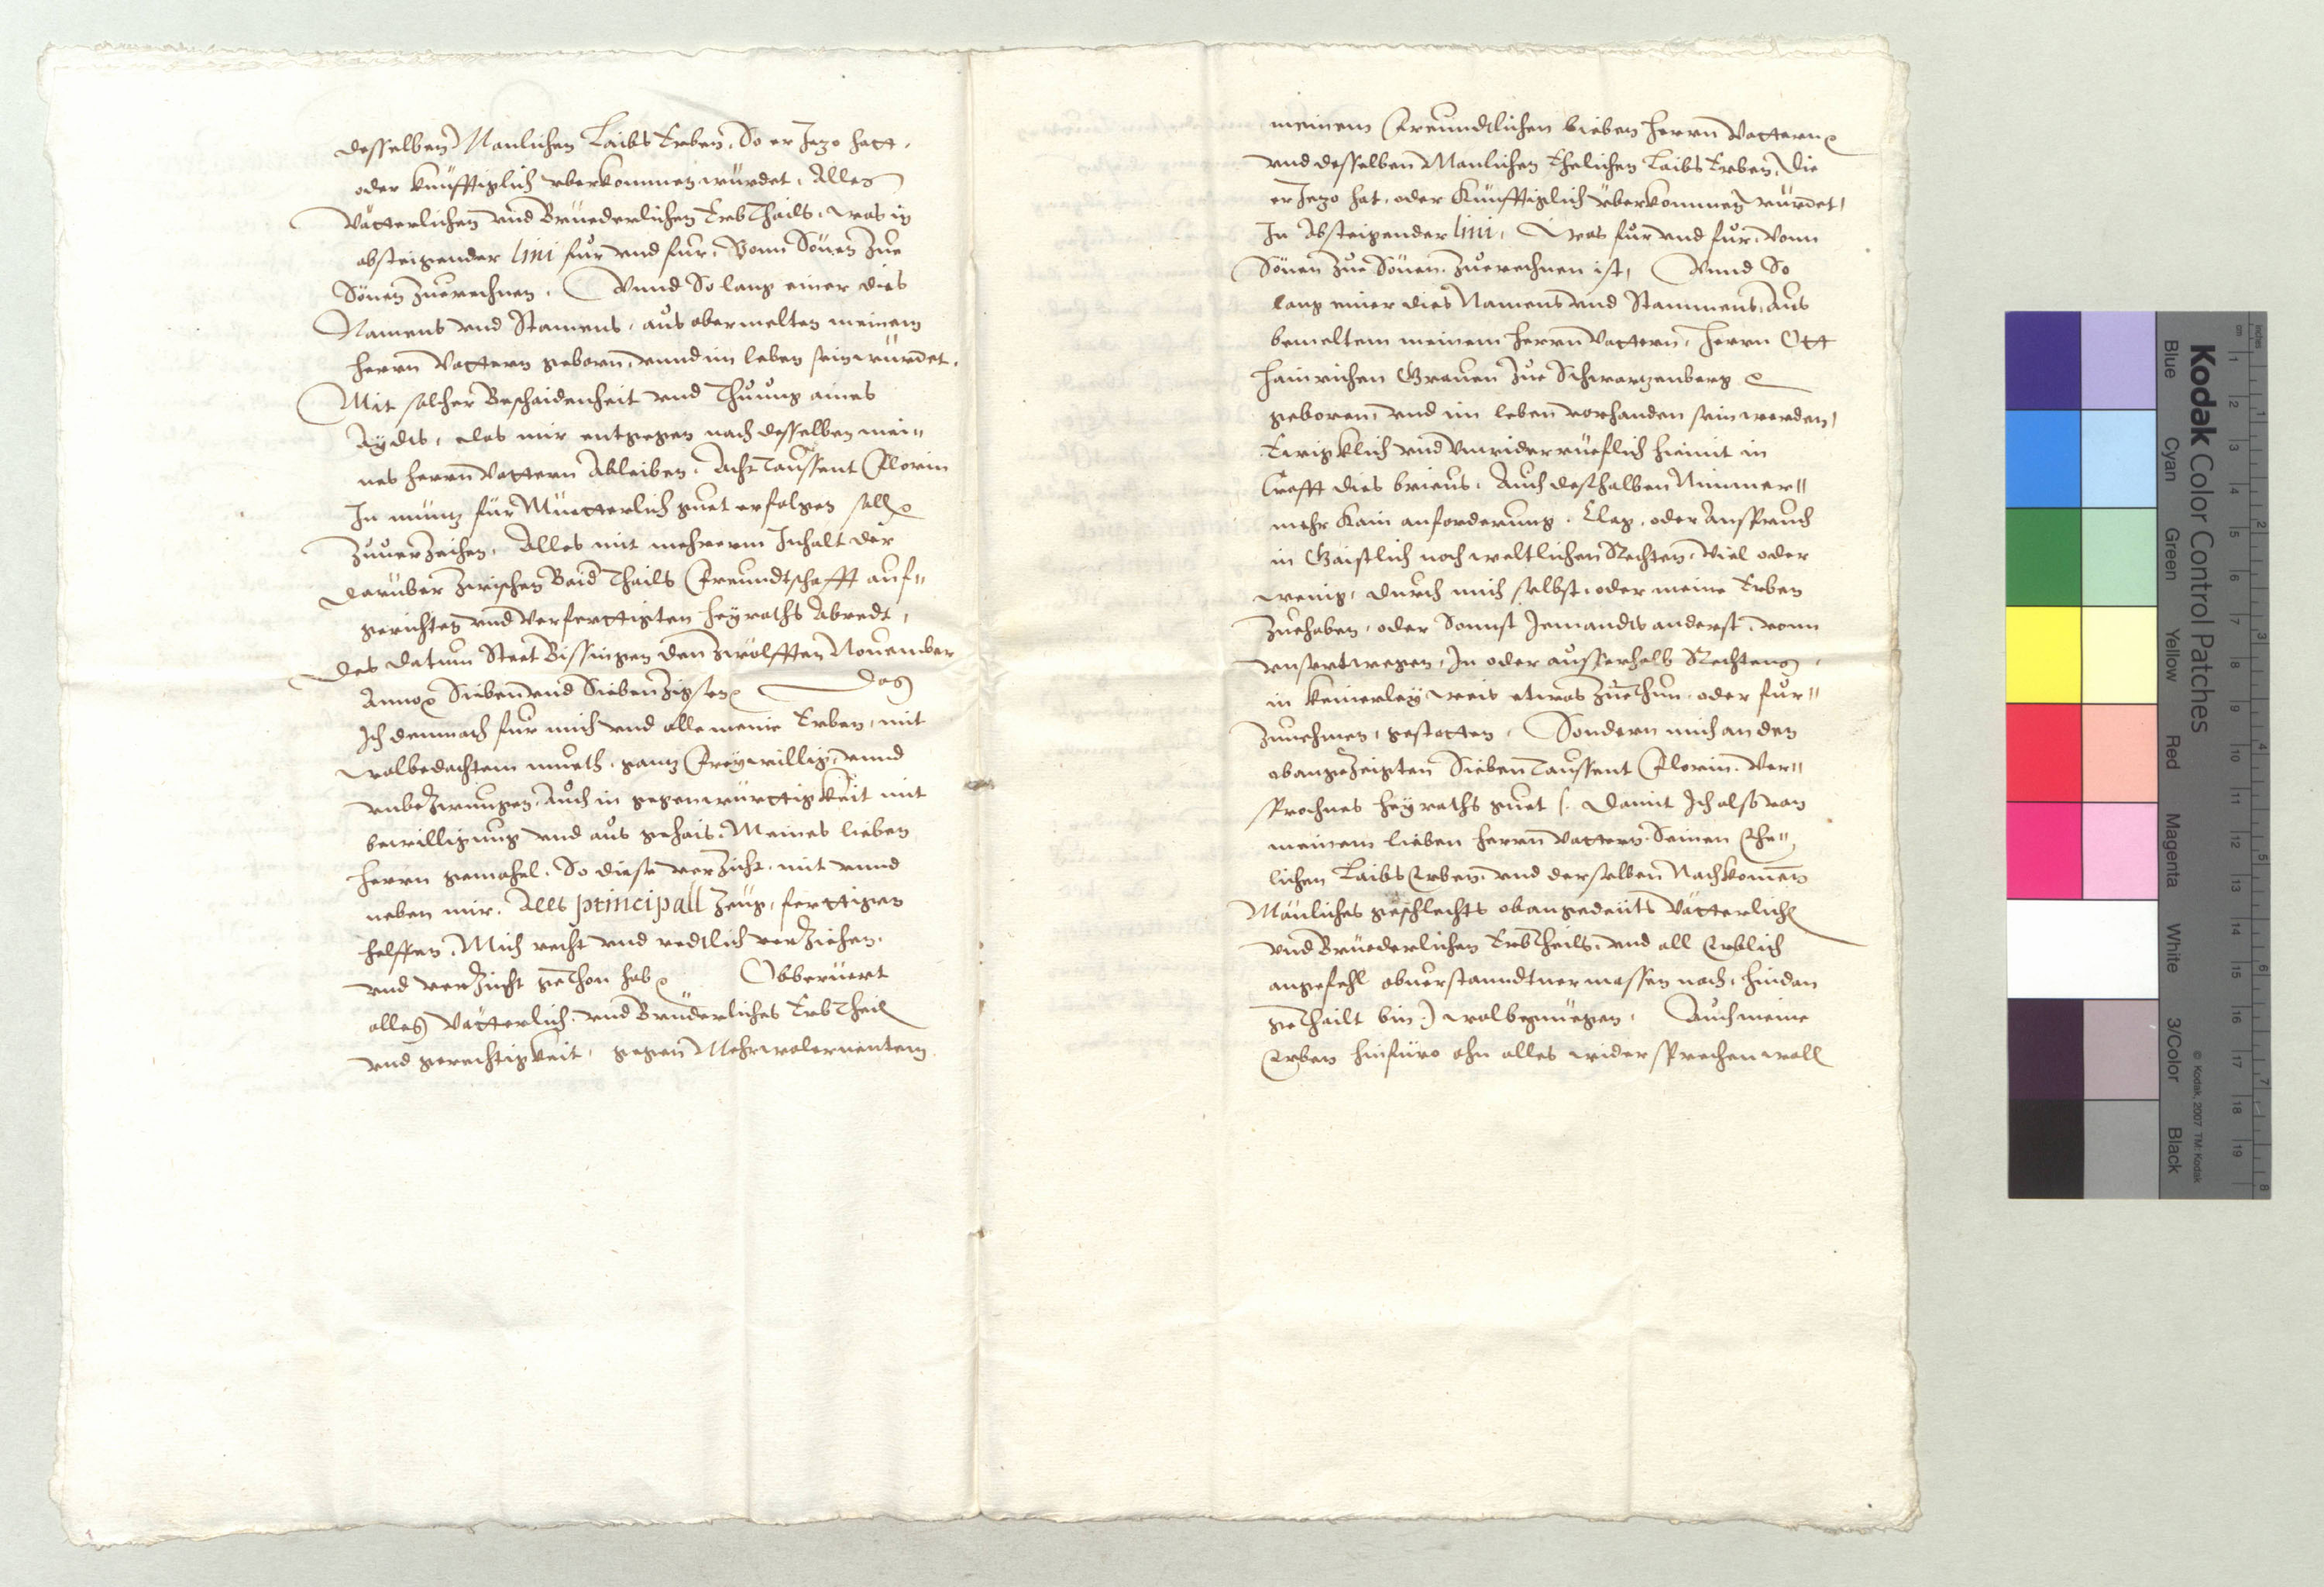 desselben Manlichen Laibs Erben, So er Jezo hatt,
oder khünfftiglich vberkommen würdet, Alles
Vätterlichen vnd Brüederlichen Erbthails, was in
absteigender lini für vnd für, Vonn Sönen zue
Sönen zuerechnen, Vnnd So lang einer dies
Namens vnd Stamens, aus obermelten meinem
herrn Vattern geborn, vnnd im leben sein würdet,
Mit solcher Beschaidenheit vnd Thuung aines
Aydts, alls mir entgegen nach desselben mei=
nes herrn Vattern Ableiben, Acht Taussent Florin
In müntz für Müetterlich guet erfolgen soll
zuuerzeihen, Alles mit mehrerm Inhalt der
darüber zwischen Baid Thails Freundtschafft auf=
gerichten vnd verferttigten heyraths Abredt,
des datum Steet Bissingen den zwölfften Nouember
Anno Siben vnd Sibenzigsten Das
Ich demnach für mich vnd alle meine Erben, mit
wolbedachtem mueth, gantz Freywillig, vnnd
vnbezwungen, Auch in gegenwürttigkheit mit
bewilligung vnd aus gehais, Meines lieben
herrn gemahel, So diese verzicht, mit vnnd
neben mir, Alls principall Zeug, ferttigen
helffen, Mich recht vnd redtlich verzihen,
vnd verzicht gethon hab Obberüert
alles Vätterlich, vnd Brüderliches Erbtheil
vnd gerechtigkheit, gegen Mehrwolernentem
meinem Freundtlichen lieben herrn Vattern
vnd desselben Manlichen Ehelichen Laibs Erben, Die
er Jezo hat, oder Künfftiglich vberkommen würdet,
In Absteigender lini, Was für vnd für, vonn
Sönen zue Sönen, zuerechnen ist, Vnnd So
lang einer dies Namens vnd Stammens, Aus
bemeltem meinem herrn Vattern, herrn Ott
Hainrichen Grauen zue Schwartzenberg
geboren, vnd im leben vorhanden sein werden,
Ewigklich vnd vnwiderrüeflich hiemit in
Crafft dies brieus, Auch deshalben Nimmer=
mehr Kain anforderung, Clag, oder Anspruch
in Gaistlich noch weltlichen Rechten, Viel oder
wenig, durch mich selbst, oder meine Erben
zuehaben, oder Sonnst Jemandts anderst, vonn
vnsertwegen, In oder ausserhalb Rechtens,
in keinerley weis etwas zuethun, oder für=
zunehmen, gestatten, Sondern mich an den
obangezeigten Siben Taussent Florin, Ver=
sprochnes heyraths guet (: Damit Ich also von
meinem lieben herrn Vattern, Seinen Ehe=
lichen Laibs Erben, vnd derselben Nachkomen
Mänliches geschlechts obangedeüts Vätterlich
vnd Brüederlichen Erbtheils, vnd all Erblich
angefehl obuerstanndtner massen nach, hindan
gethailt bin :) wolbegnüegen, Auch meine
Erben hinfüro ohn alles widersprechen woll